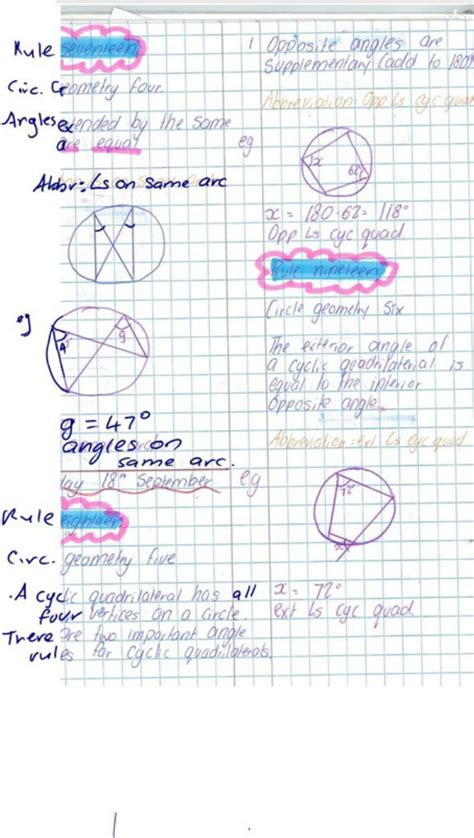 Rule seventeen
Circ. Geometry four.
Angles extended by the same
are equal
Abbr: Ls on same arc
eg
g = 47°
angles on
same arc.
day 18th September
Rule eighteen
Circ. geometry five
. A cyclic quadrilateral has all
four vertices on a circle
There are two important angle
rules for cyclic quadrilaterals
1 Opposite angles are
supplementary (add to 180°
Abbreviation: Opp Ls cyc quad
eg
x
62°
x = 180-62= 118°
Opp Ls cyc quad
Rule nineteen
Circle geometry Six
The exterior angle of
a cyclic quadrilateral is
equal to the interior
opposite angle.
Abbreviation: ext Ls cyc quad
eg
72°
x
x = 72°
ext Ls cyc quad.